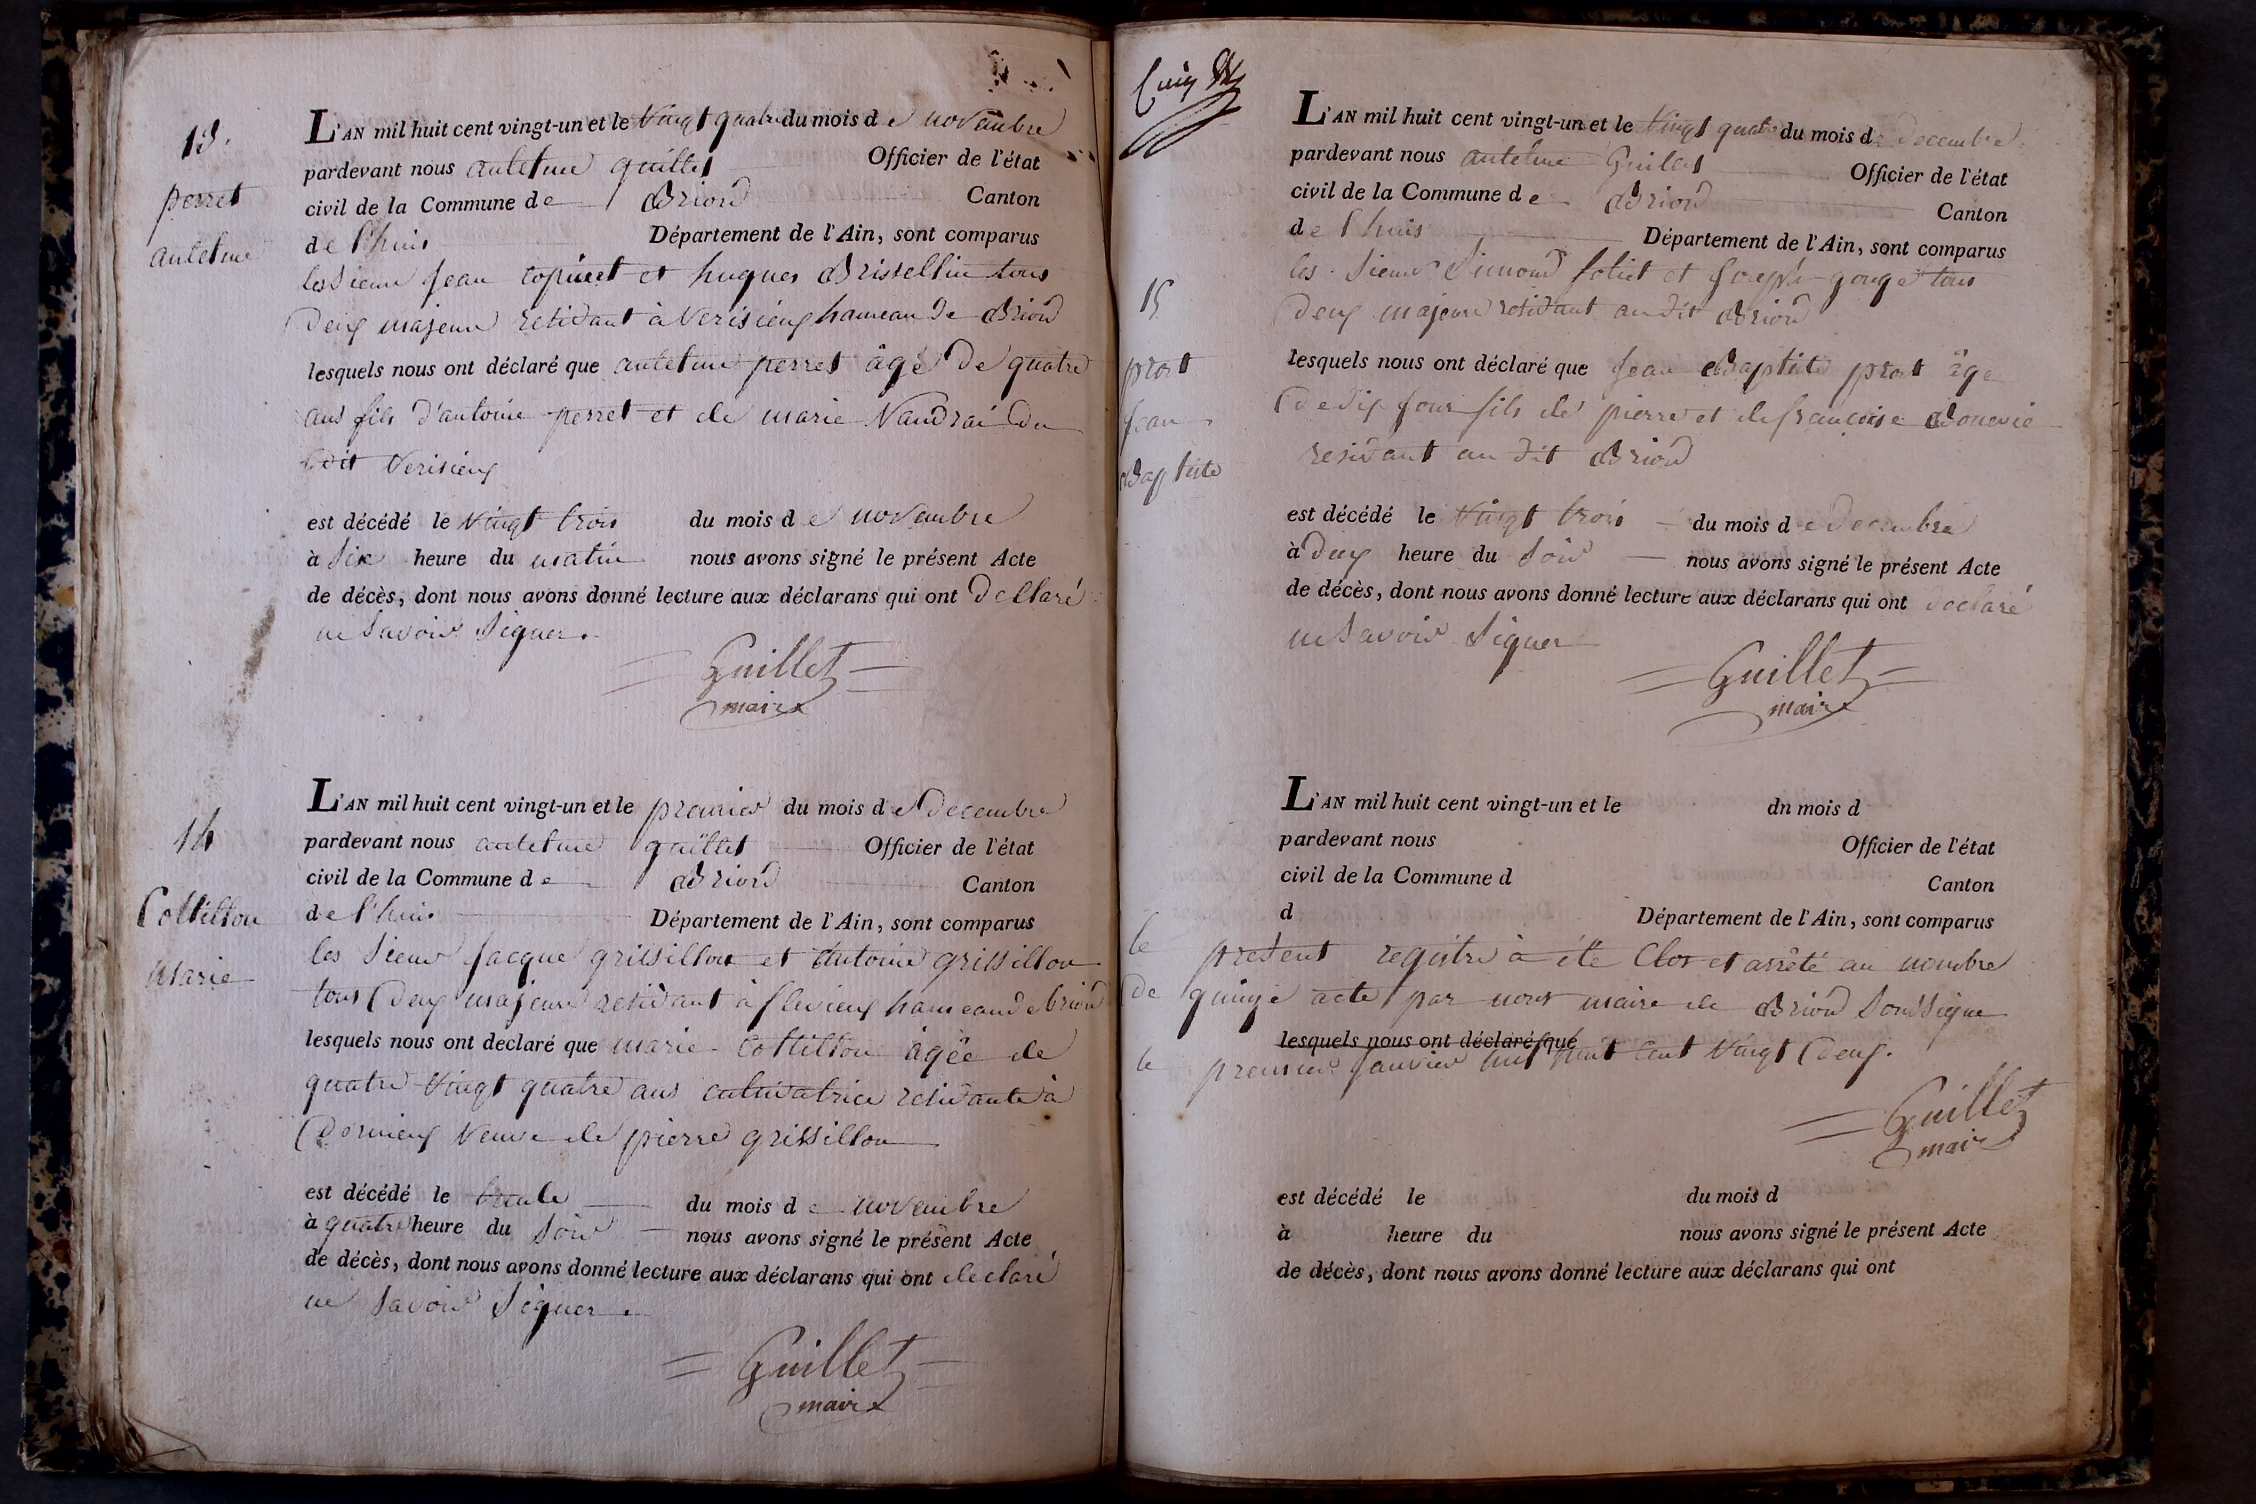 13.
perret
antelme
L'AN mil huit cent vingt-un et le vingt quatre du mois de novembre
pardevant nous antelme guillet Officier de l'état
civil de la Commune de Briord Canton
de l'huis Département de l'Ain, sont comparus
les sieur jean copinet et hugues Brissellin tous
deux majeur residant à Verisieux hameau de Briord
lesquels nous ont déclaré que antelme perret âgé de quatre
ans fils d'antoine perret et de marie Vaudrai du
dit Verisieux
est décédé le vingt trois du mois de novembre
à six heure du matin nous avons signé le présent Acte
de décès, dont nous avons donné lecture aux déclarans qui ont declaré
ne savoir signer.
Guillet
maire
14
Cottillon
marie
L'AN mil huit cent vingt-un et le premier du mois de decembre
pardevant nous antelme guillet Officier de l'état
civil de la Commune de Briord Canton
de l'huis Département de l'Ain, sont comparus
les sieur jacque grissillon et Antoine grissillon
tous deux majeur residant à flevieux hameau de briord
lesquels nous ont declaré que marie Cottillon âgée de
quatre vingt quatre ans cultivatrice residante à
Dornieux veuve de pierre grissillon
est décédé le trente du mois de novembre
à quatre heure du soir nous avons signé le présent Acte
de décès, dont nous avons donné lecture aux déclarans qui ont declaré
ne savoir signer.
Guillet
maire
15
prost
jean
Baptiste
L'AN mil huit cent vingt-un et le vingt quatre du mois de decembre
pardevant nous antelme Guillet Officier de l'état
civil de la Commune de Briord Canton
de l'huis Département de l'Ain, sont comparus
les sieur Simond foliet et joseph gouge tous
deux majeur residant au dit Briord
lesquels nous ont déclaré que jean Baptiste prost âge
de dix jour fils de pierre et de francoise
residant au dit Briord
est décédé le vingt trois du mois de decembre
à deux heure du soir nous avons signé le présent Acte
de décès, dont nous avons donné lecture aux déclarans qui ont declaré
ne savoir signer
Guillet
maire
L'AN mil huit cent vingt-un et le dn mois d
pardevant nous Officier de l'état
civil de la Commune d Canton
d Département de l'Ain, sont comparus
le présent registre à été Clos et arrêté au nombre
de quinze acte par nous maire de Briord soussigne
lesquels nous ont déclaré que
le premier janvier mil huit cent vingt deux.
Guillet
maire
est décédé le du mois d
à heure du nous avons signé le présent Acte
de décès, dont nous avons donné lecture aux déclarans qui ont